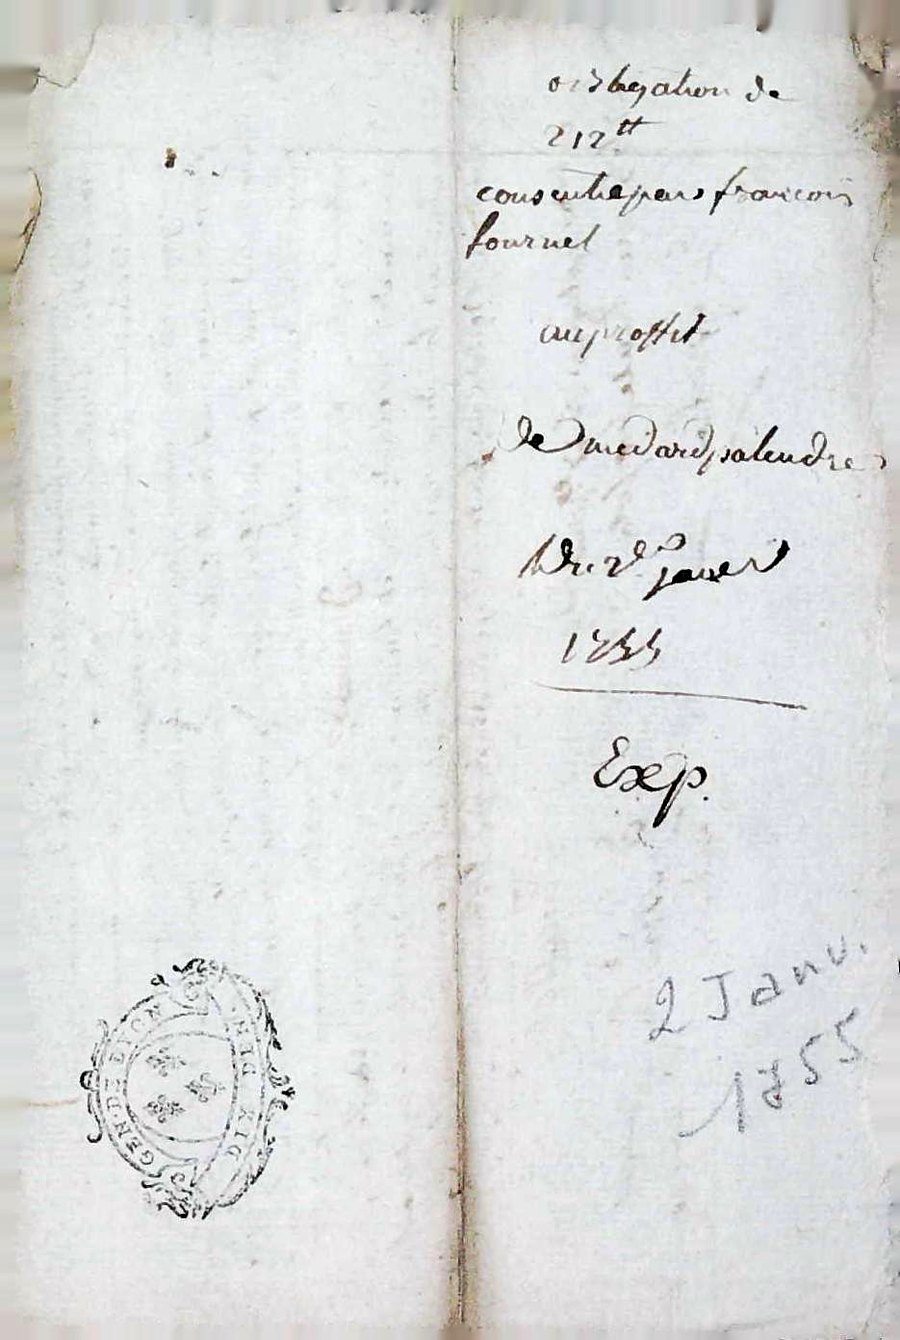 obligation de
212tt
consentie par françois
fournel
au proffit
de medard palendre
du 2e janer
1755
Exp.
2 Janv.
1755
GEN. DE LION
DIX DEN.